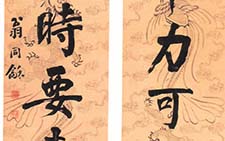 力可
時要
翁同龢